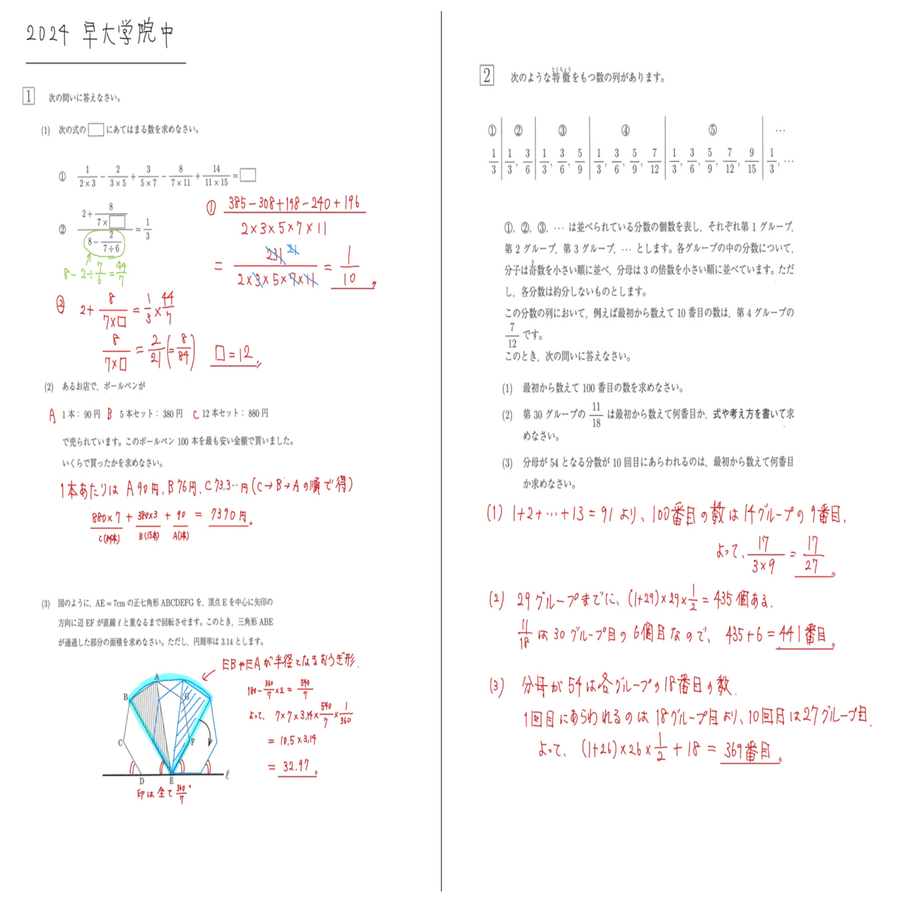 2024 早大学院中
1 次の問いに答えなさい。
(1) 次の式の□にあてはまる数を求めなさい。
① 1/(2×3) − 2/(3×5) + 3/(5×7) − 8/(7×11) + 14/(11×15) = □
② (2+8/(7×□))/(8−2/(7÷6)) = 1/3
8−2÷7/6=44/7
① (385−308+198−240+196)/(2×3×5×7×11)
= 231/(2×3×5×7×11) = 1/10 。
21
② 2+8/(7×□) = 1/3×44/7
8/(7×□) = 2/21 (=8/84) □=12 。
(2) あるお店で,ボールペンが
A 1本:90円 B 5本セット:380円 C 12本セット:880円
で売られています。このボールペン100本を最も安い金額で買いました。
いくらで買ったかを求めなさい。
1本あたりは A90円,B76円,C73.3…円(C→B→Aの順で得)
880×7 + 380×3 + 90 = 7390円 。
C(84本) B(15本) A(1本)
(3) 図のように,AE=7cmの正七角形ABCDEFGを,頂点Eを中心に矢印の
方向に辺EFが直線ℓと重なるまで回転させます。このとき,三角形ABE
が通過した部分の面積を求めなさい。ただし,円周率は3.14とします。
EBやEAが半径となるおうぎ形.
180−360/7×2=540/7
よって, 7×7×3.14×540/7×1/360
= 10.5×3.14
= 32.97 。
A
B
G
C
F
D
E
ℓ
印は全て360/7°
2 次のような特徴をもつ数の列があります。
とくちょう
① | ② | ③ | ④ | ⑤ | …
1/3 | 1/3, 3/6 | 1/3, 3/6, 5/9 | 1/3, 3/6, 5/9, 7/12 | 1/3, 3/6, 5/9, 7/12, 9/15 | 1/3, …
①,②,③,… は並べられている分数の個数を表し,それぞれ第1グループ,
第2グループ,第3グループ,… とします。各グループの中の分数について,
分子は奇数を小さい順に並べ,分母は3の倍数を小さい順に並べています。ただ
し,各分数は約分しないものとします。
この分数の列において,例えば最初から数えて10番目の数は,第4グループの
7/12 です。
このとき,次の問いに答えなさい。
(1) 最初から数えて100番目の数を求めなさい。
(2) 第30グループの 11/18 は最初から数えて何番目か,式や考え方を書いて求
めなさい。
(3) 分母が54となる分数が10回目にあらわれるのは,最初から数えて何番目
か求めなさい。
(1) 1+2+…+13=91より、100番目の数は14グループの9番目.
よって、17/(3×9) = 17/27 。
(2) 29グループまでに、(1+29)×29×1/2=435個ある.
11/18は30グループ目の6個目なので、435+6=441番目 。
(3) 分母が54は各グループの18番目の数.
1回目にあらわれるのは18グループ目より、10回目は27グループ目.
よって、(1+26)×26×1/2+18 = 369番目 。